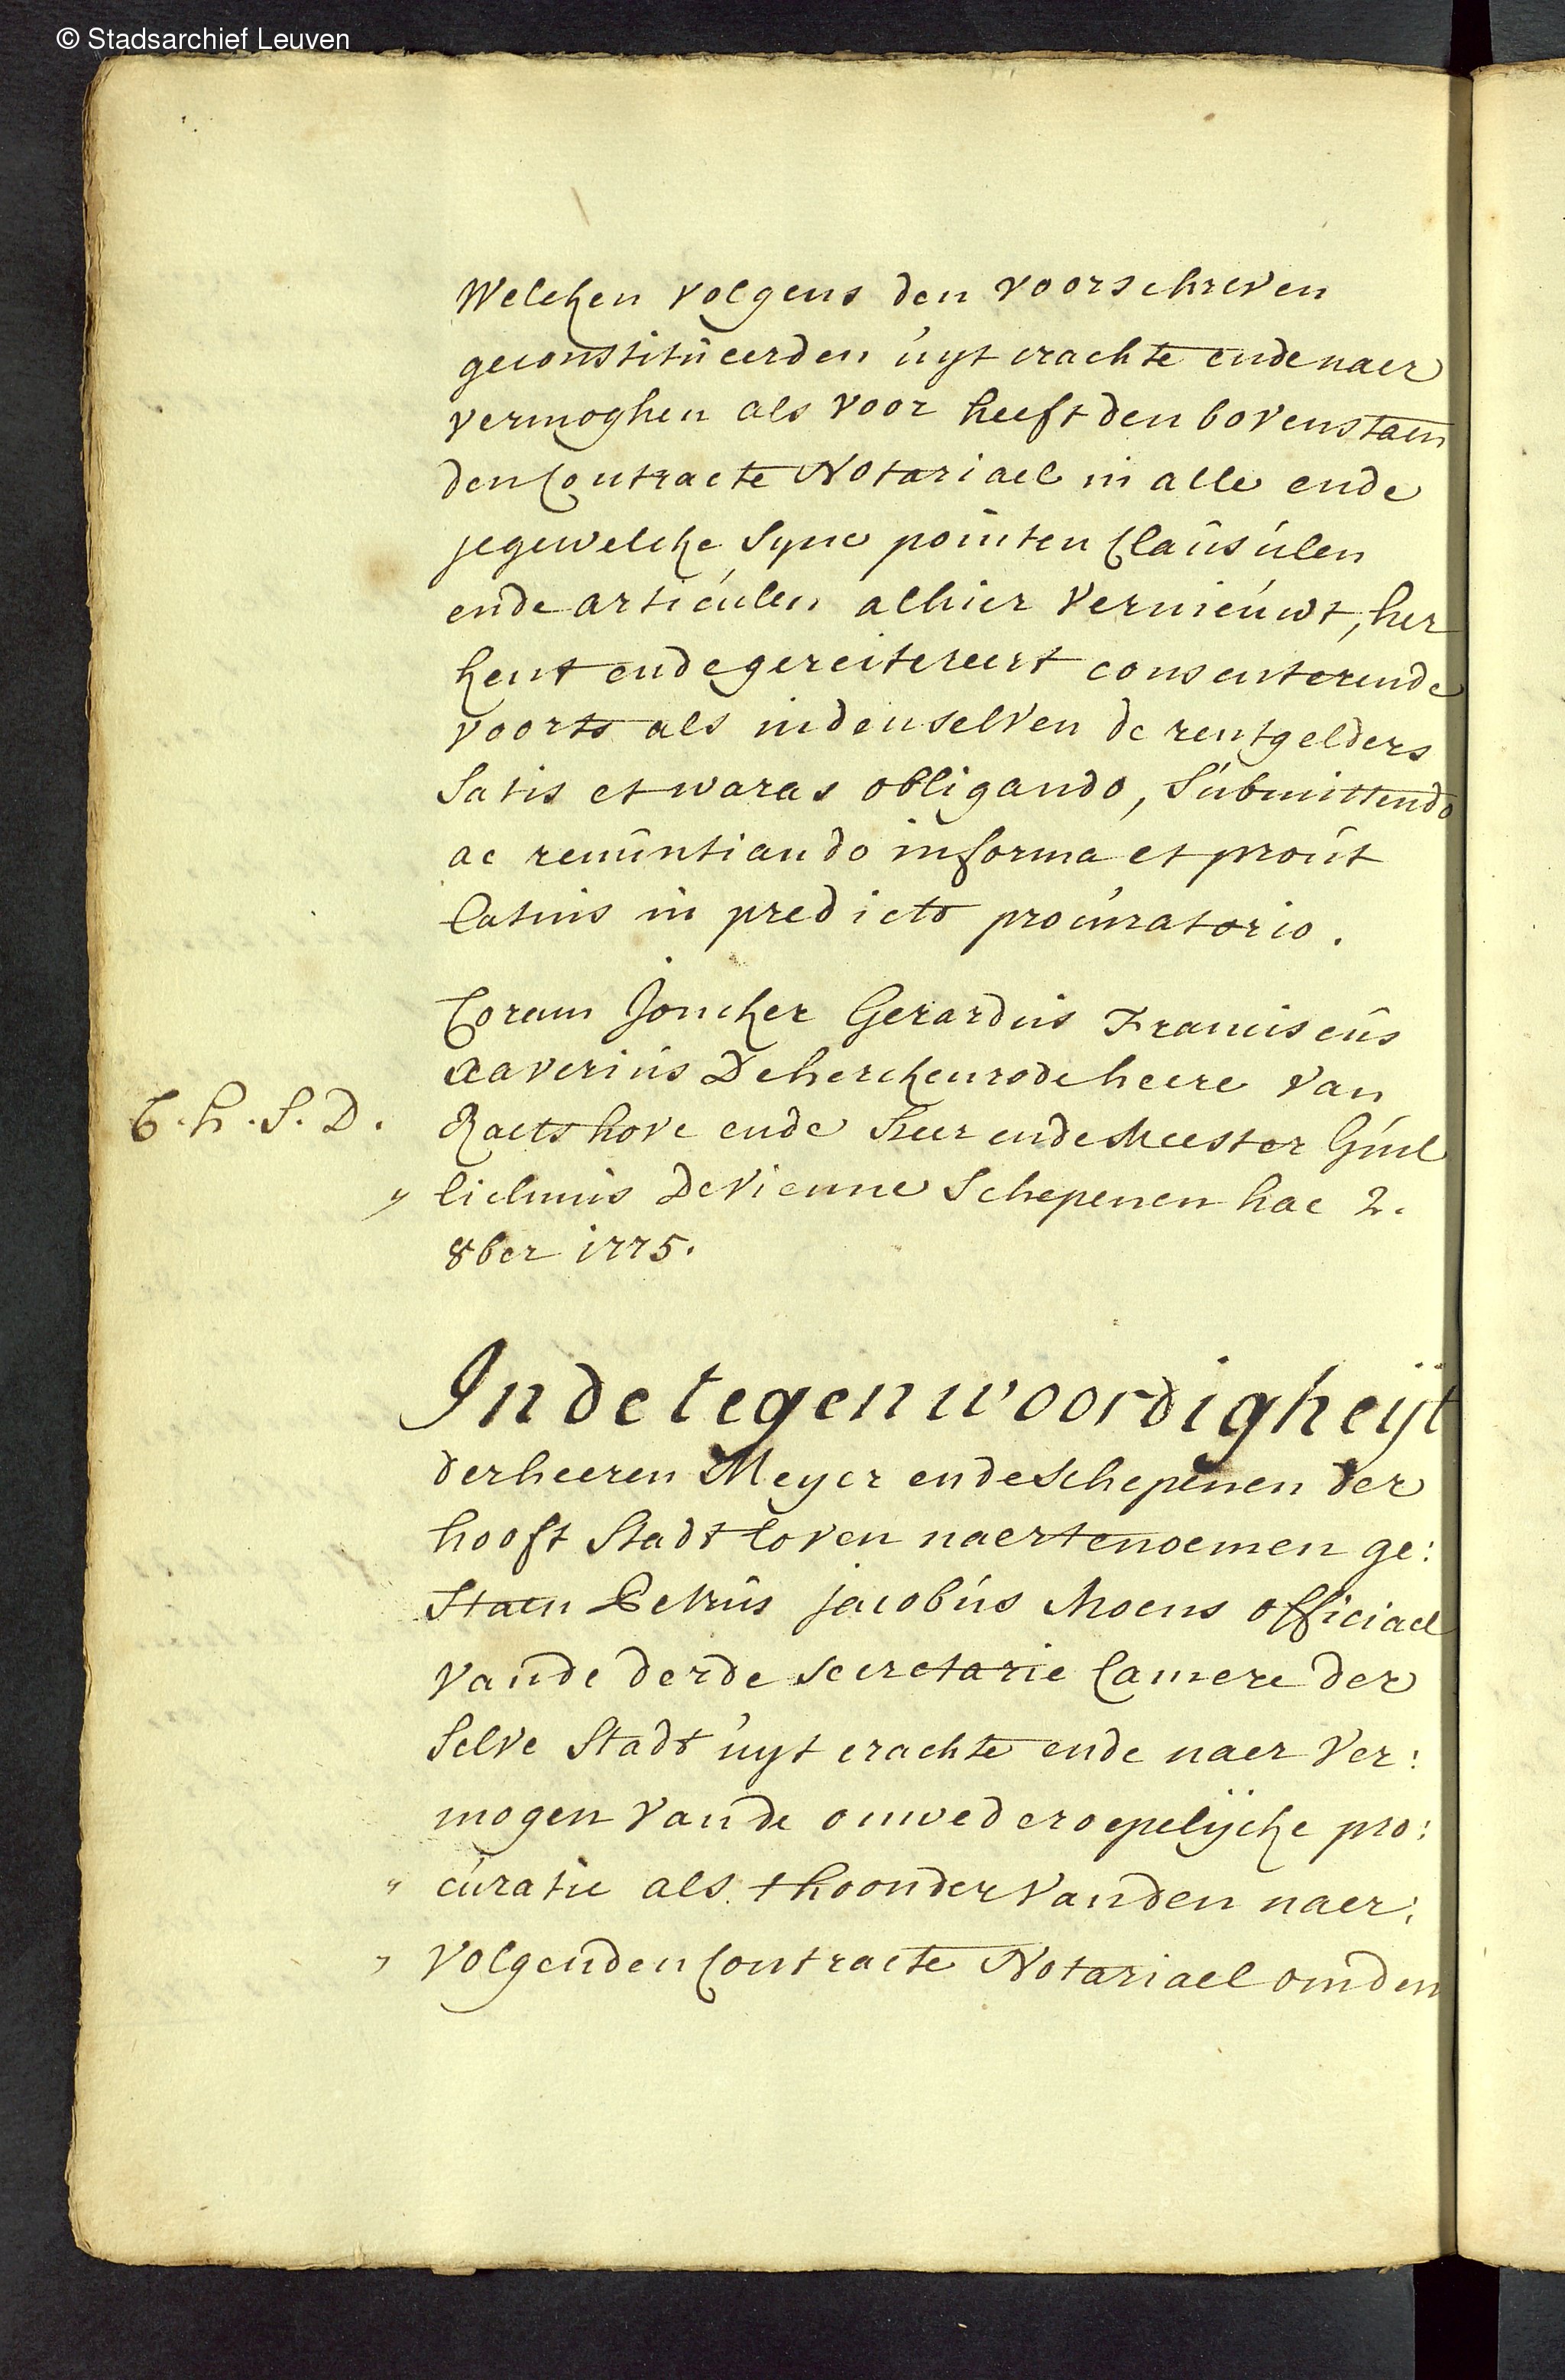 © Stadsarchief Leuven
Welcken volgens den voorschreven
geconstitueerden uyt crachte ende naer
vermoghen als voor heeft den bovenstaen
den Contracte Notariael in alle ende
jegewelcke syne pointen Clausulen
ende articulen alhier vernieuwt, her
kent ende gereitereert consenterende
voorts als in denselven de rentgelders
Satis et waras obligando, Submittendo
ac renuntiando in forma et prout
latius in predicto procuratorio.
Coram Joncker Gerardus Franciscus
Xaverius De herckenrode heere van
C. h. S. D. Raetshove ende heer ende Meester Guil
" lielmus De Vienne Schepenen hac 2.
8ber 1775.
In de tegenwoordigheijt
der heeren Meyer ende Schepenen der
hooft Stadt loven naertenoemen ge:
Staen Petrus jacobus Moens officiael
vande derde secretarie Camere der
Selve Stadt uyt crachte ende naer ver:
mogen vande onwederoepelijcke pro:
" curatie als thoonder vanden naer:
" volgenden Contracte Notariael om den